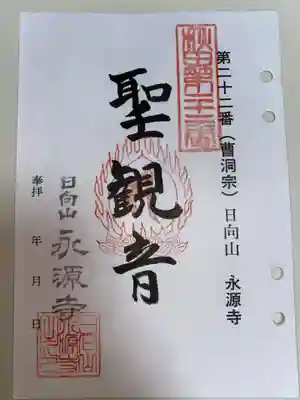 第二十二番（曹洞宗）日向山　永源寺
秋田第廿二番
聖観音
奉拝　年　月　日
日向山
永源寺